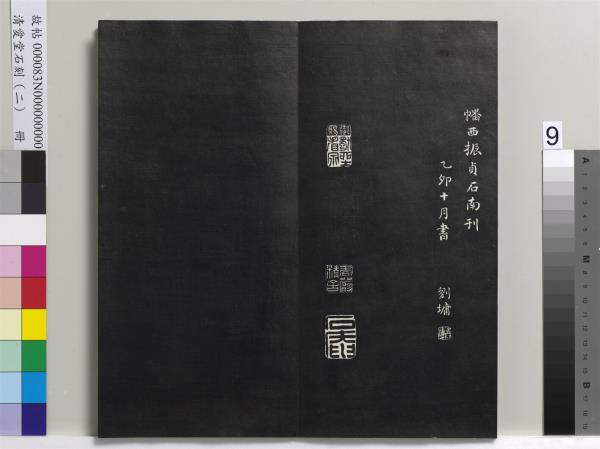 幡西振貞石南刊
乙卯十月書
劉墉
故帖 000083N000000000
清愛堂石刻（二） 冊
9
A
1
2
3
4
5
6
M
8
9
10
11
12
13
14
15
B
17
18
19